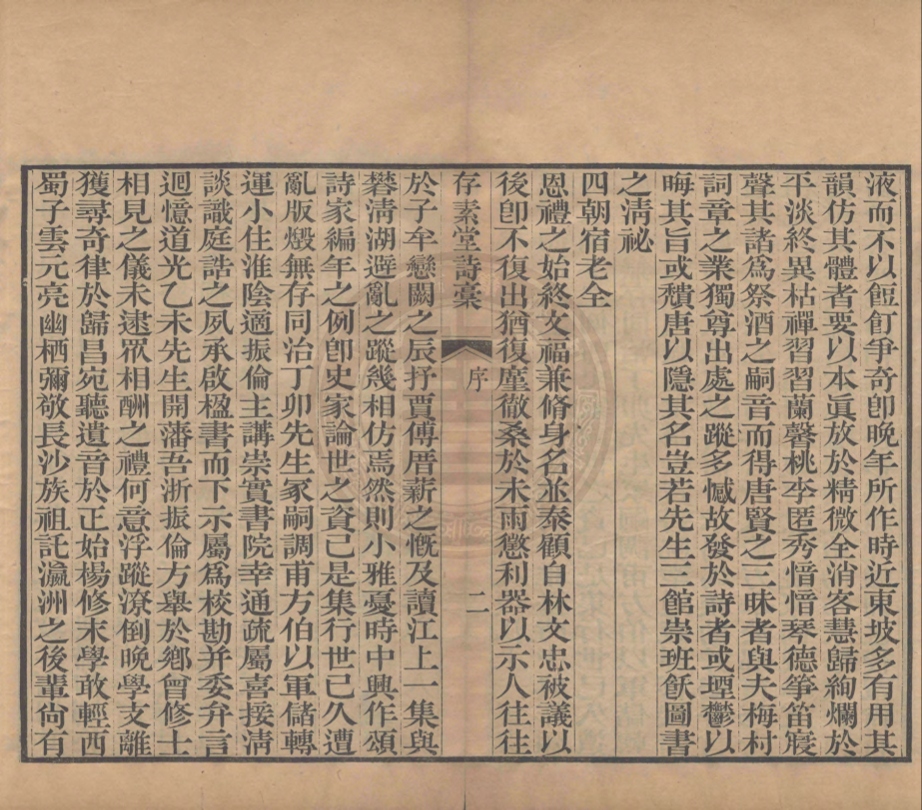 液而不以飣餖爭奇卽晚年所作時近東坡多有用其
韻仿其體者要以本眞放於精微全消客慧歸絢爛於
平淡終異枯禪習習蘭馨桃李匿秀愔愔琴德箏笛寢
聲其諸爲祭酒之嗣音而得唐賢之三昧者與夫梅村
詞章之業獨尊出處之蹤多憾故發於詩者或堙鬱以
晦其旨或穨唐以隱其名豈若先生三館崇班飫圖書
之淸祕
四朝宿老全
恩禮之始終文福兼脩身名並泰顧自林文忠被議以
後卽不復出猶復廑徹桑於未雨懲利器以示人往往
存素堂詩稾
序
二
於子牟戀闕之辰抒賈傅厝薪之慨及讀江上一集與
礬淸湖遊亂之蹤幾相仿焉然則小雅憂時中興作頌
詩家編年之例卽史家論世之資已是集行世已久遭
亂版燬無存同治丁卯先生冢嗣調甫方伯以軍儲轉
運小住淮陰適振倫主講崇實書院幸通疏屬喜接淸
談識庭誥之夙承啟楹書而下示屬爲校勘并委弁言
迴憶道光乙未先生開藩吾浙振倫方舉於鄕曾修士
相見之儀未逮眾相酬之禮何意浮蹤潦倒晚學支離
獲尋奇律於歸昌宛聽遺音於正始楊修末學敢輕西
蜀子雲元亮幽栖彌敬長沙族祖託瀛洲之後輩尙有